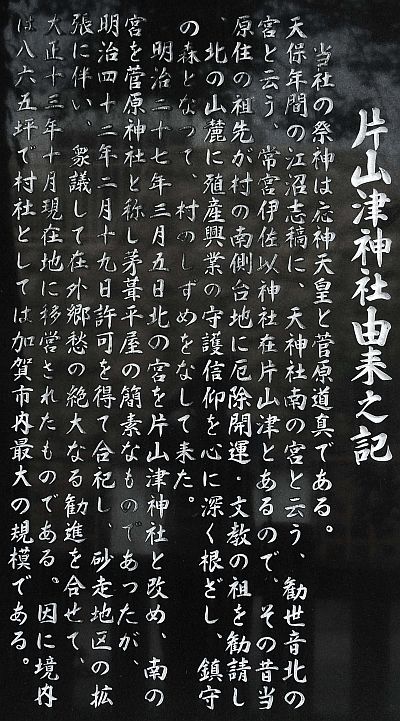 片山津神社由来之記
当社の祭神は応神天皇と菅原道真である。
天保年間の江沼志稿に、天神社南の宮と云う、勧世音北の
宮と云う、常宮伊佐以神社在片山津とあるので、その昔当
原住の祖先が村の南側台地に厄除開運・文教の祖を勧請し
、北の山麓に殖産興業の守護信仰を心に深く根ざし、鎮守
の森となって、村のしずめをなして来た。
明治二十七年三月五日北の宮を片山津神社と改め、南の
宮を菅原神社と称し茅葺平屋の簡素なものであったが、
明治四十二年二月十九日許可を得て合祀し、砂走地区の拡
張に伴い、衆議して在外郷愁の絶大なる勧進を合せて、
大正十三年十月現在地に移営されたものである。因に境内
は八六五坪で村社としては加賀市内最大の規模である。